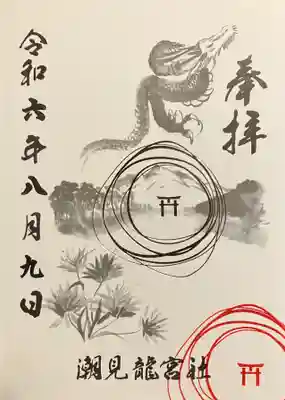 奉拝
令和六年八月九日
潮見龍宮社